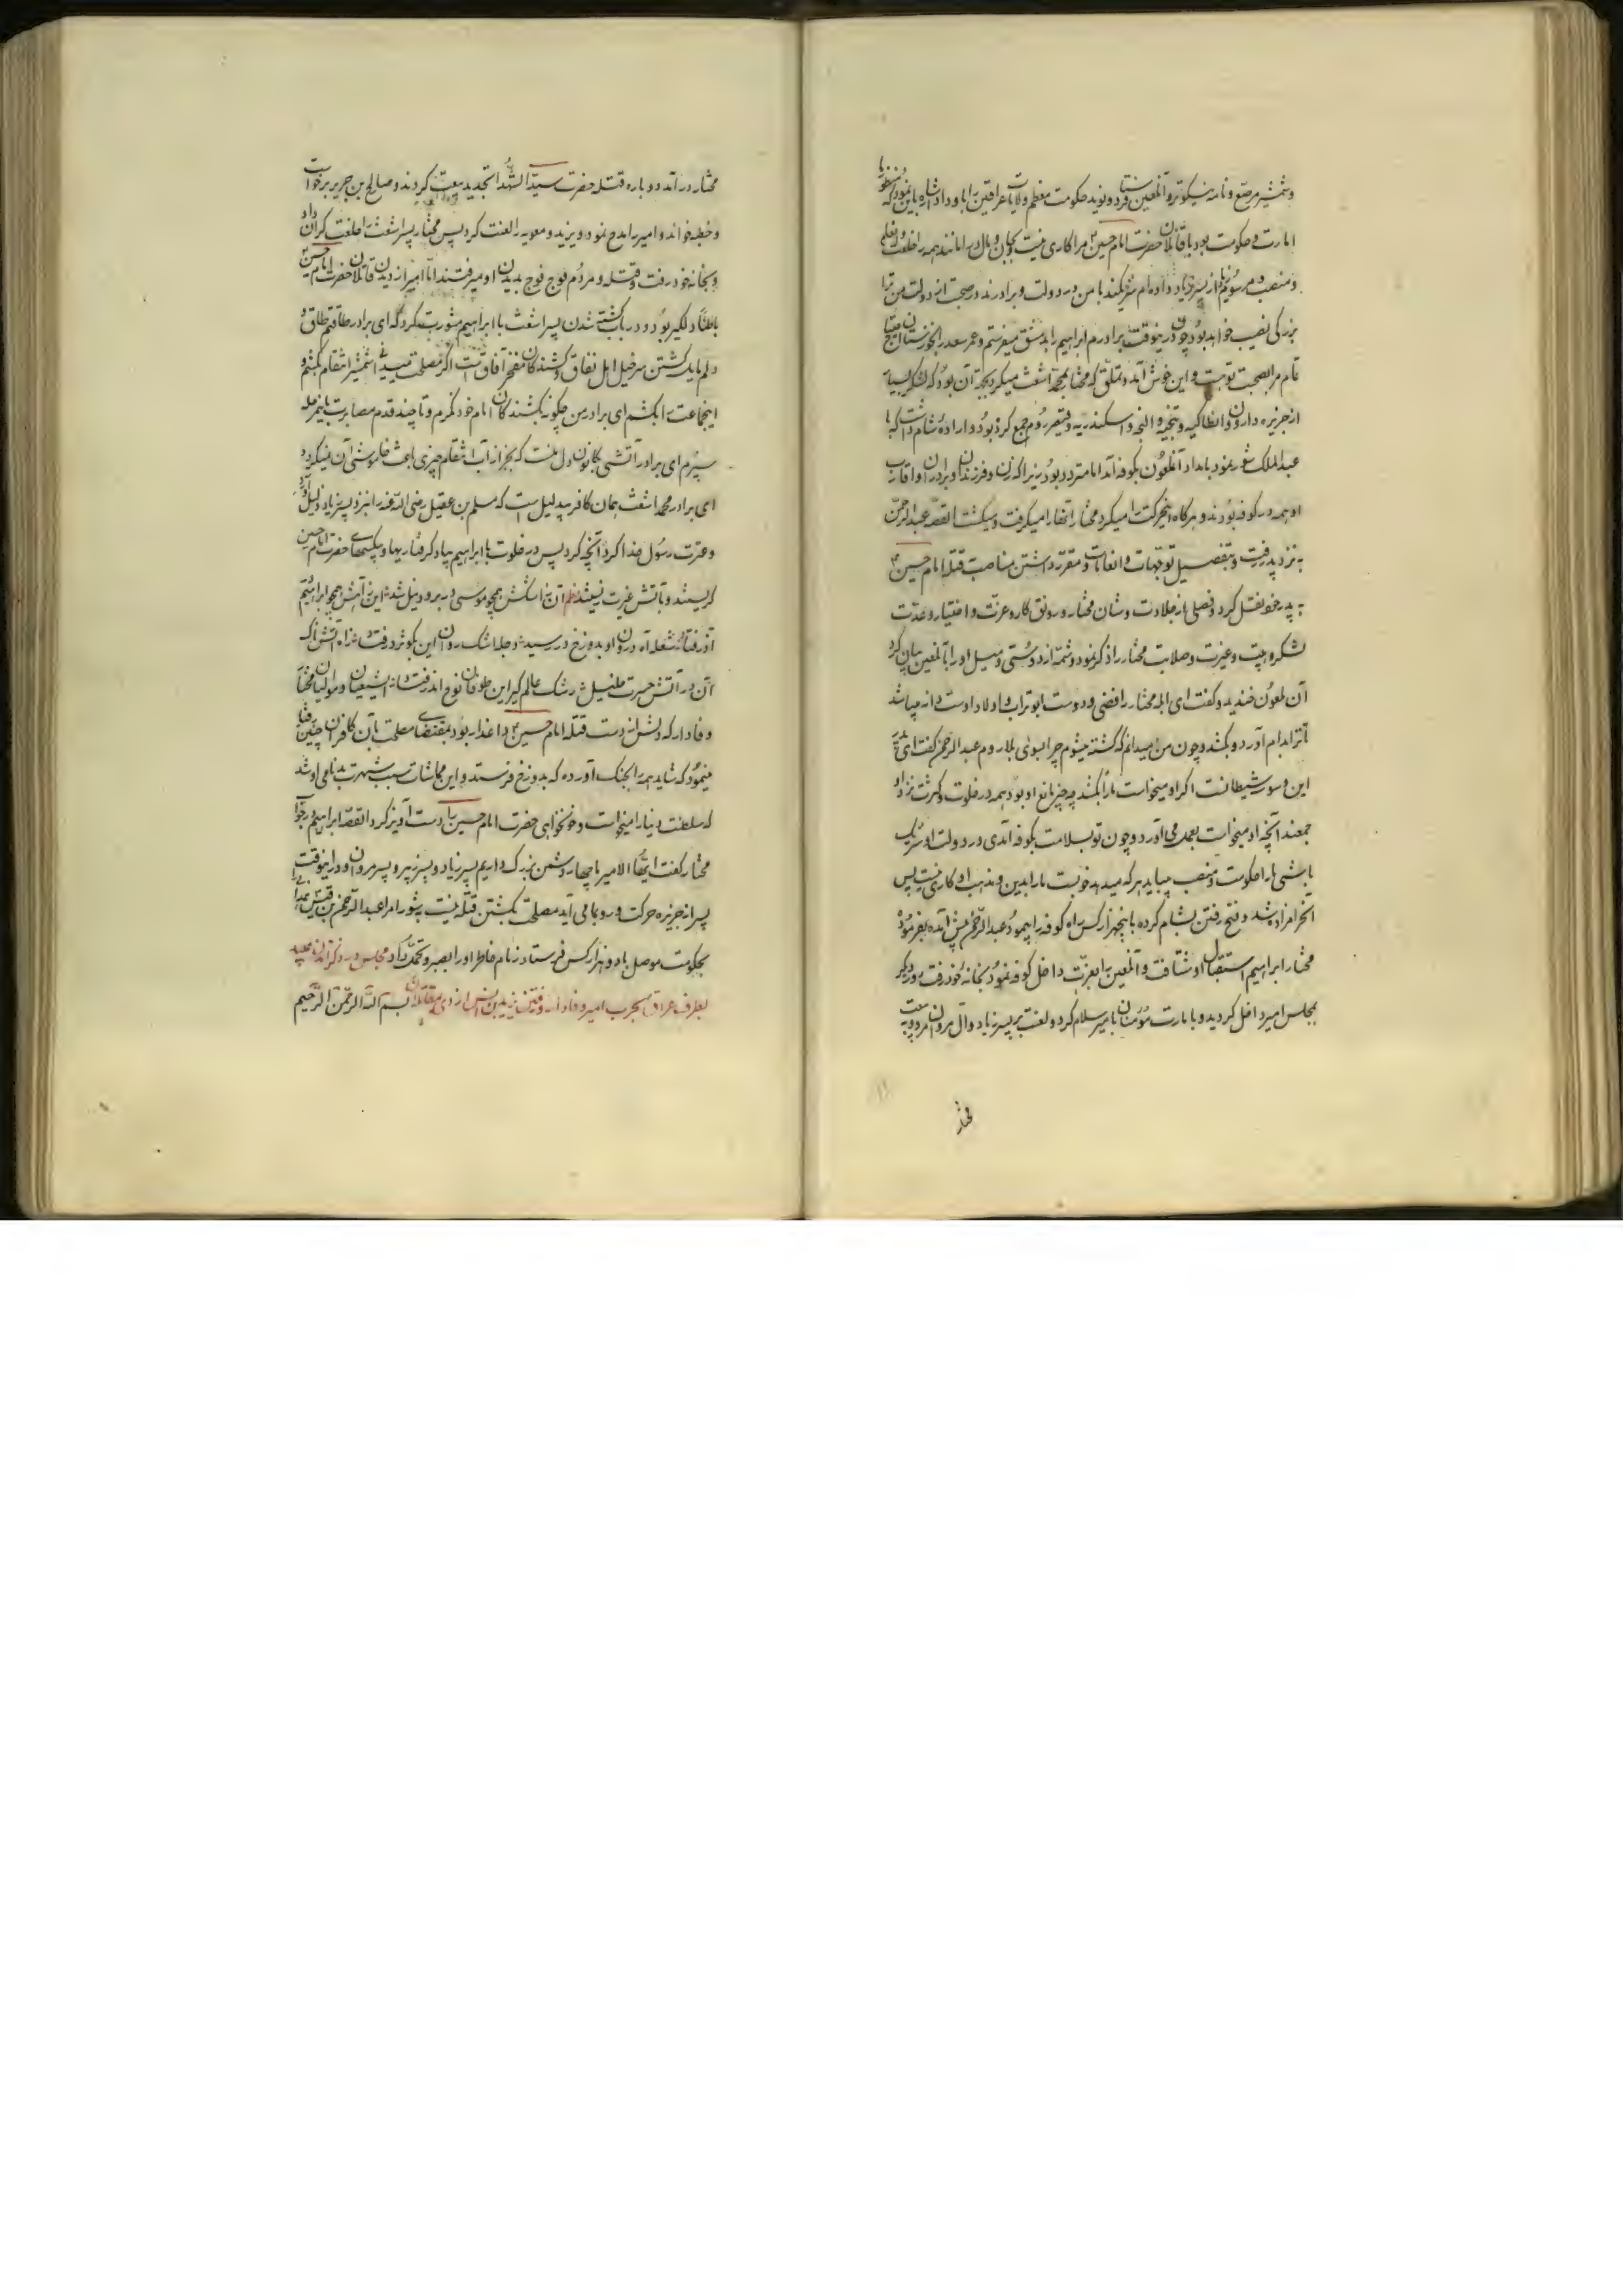 وشمشیر مرصع و نامه نیکوتر و آنلعین فرستاد و نوید حکومت معظم ولایات عراقین را باو داد اشاره باین نمود که
امارت و حکومت بود با قاتلان حضرت امام حسین مرا کاری نیست بجان و مال در امانند همه را خلعت
و منصب و مرسوم از پسر زیاد داده‌ام شریکند با من در دولت و برادرند در صحبت از دولت من ترا
بزرکی نصیب خواهد بود چون درینوقت برادرم ابراهیم را بدمشق میفرستم و عمر سعد را بخوزستان احتیاج
تمام مرا بصحبت توست و این خوش آمد و تملق که مختار بمحمد اشعث میکرد بجهة آن بود که لشکر بسیار
از جزیره داران و انطاکیه و اسکندریه و قیصر روم جمع کرده بود و اراده شام داشت که با
عبدالملک شور نمود بامداد آنملعون بکوفه آمد اما متردد بود زیرا که زن و فرزندان و برادران و اقارب
او همه در کوفه بودند و هرکاه اینحرکت را میکرد مختار آنها را میکرفت و میکشت القصه عبدالرحمن
به نزد پدر رفت و بتفصیل توجهات و انعامات و مقرر داشتن مناصب قتله امام حسین
به پدر خود نقل کرد و فصلی از جلادت و شان مختار و رونق کار و عزت و اختیار و عدت
لشکر و هیبت و غیرت و صلابت مختار را ذکر نمود و شمه از دوستی و میل او را بآنلعین بیان کرد
آن ملعون خندید و کفت ای ابله مختار رافضی و دوست ابوتراب و اولاد اوست دانه میپاشد
تا ترا بدام آورد و بکشد و چون من میدانم که کشته میشوم چرا بسوی بلا روم عبدالرحمن کفت ای پدر
این وسوسه شیطانست اکر او میخواست ما را بکشد چه چیز مانع او بود همه در خلوت و کثرت نزد او
جمعند آنچه او میخواست بعمل می آورد و چون تو بسلامت بکوفه آمدی و در دولت او شریک
باشی ما را حکومت و منصب میباید هرکه میدهد خوبست ما را بدین و مذهب او کاری نیست پس
آنحرامزاده شد و فسخ رفتن بشام کرده با پنجهزار کس راه کوفه را پیمود عبدالرحمن پیش آمده بفرموده
مختار ابراهیم استقبال او شتافت و آنلعین را بعزت داخل کوفه نمود بخانه خود رفت روز دیکر
بمجلس امیر داخل کردید و با مارت مؤمنان بامیر سلام کرد و لعنت بر پسر زیاد و آل مروان نمود و به بیعت
مختار
مختار درآمد دوباره قتله حضرت سید الشهدا تجدید بیعت کردند و صالح بن جریر برخواست
و خطبه خواند و امیر را مدح نمود و یزید و معویه را لعنت کرد پس مختار پسر اشعث را خلعت کران داد
و بخانه خود رفت و قتله و مردم فوج فوج بدیدن او میرفتند اما امیر از دیدن قاتلان حضرت امام حسین
باطنا دلکیر بود و در باب کشته شدن پسر اشعث با ابراهیم مشورت کرد که ای برادر طاقتم طاق و
دلم مایل کشتن سرخیل اهل نفاق و کشندکان مفخر آفاق است اکر مصلحت میبینی شمشیر انتقام بکشم و
اینجماعت را بکشم ای برادر من چکونه بکشندکان امام خود نکرم و تا چند قدم مصابرت باینمرحله
سپرم ای برادر آتشی بکانون دل منست که بجز از آب انتقام چیزی باعث خاموشی آن نمیکردد
ای برادر محمد اشعث همان کافر بیدلیل است که مسلم بن عقیل رضی الله عنه را نزد پسر زیاد ذلیل آورد
و عترت رسول خدا کرد آنچه کرد پس در خلوت با ابراهیم بیاد کرفتاریها و بیکسیهای حضرت امام حسین
کریستند و بآتش غیرت زیستند نظم آن ز اشکش همچو موسی در برود نیل شد این ز آهش همچو ابراهیم
آذر فتاد شعله آه درون او بدوزخ در رسید دجله اشک روان این بکوثر در فتاد از آه آتشناک
آن در آتش حسرت خلیل رشک عالمکیر این طوفان نوح اندر فتاد شیعیان و موالیان مختار
وفادار که دلش از دست قتله امام حسین داغدار بود بمقتضای مصلحت با آن کافران چنین رفتار
مینمود که شاید همه را بچنک آورده که بدوزخ فرستد و این مماشات سبب شهرت بدنامی او شد
که سلطنت دنیا را میخواست و خونخواهی حضرت امام حسین را دست آویز کرد القصه ابراهیم در جواب
مختار کفت ایها الامیر ما چهار دشمن بزرک داریم پسر زیاد و پسر زبیر و پسر مروان و در اینوقت
پسر از جزیره حرکت و رو بما می آید مصلحت بکشتن قتله نیست بشور امرا عبدالرحمن بن قیس
بحکومت موصل با دو هزار کس فرستاد زنام خاطر او را بصبر و تحمل داد مجلس در ذکر
بطرف عراق بحرب امیر وفادار و رفتن یزید بن انس ازدی بمقابله آن بسم الله الرحمن الرحیم